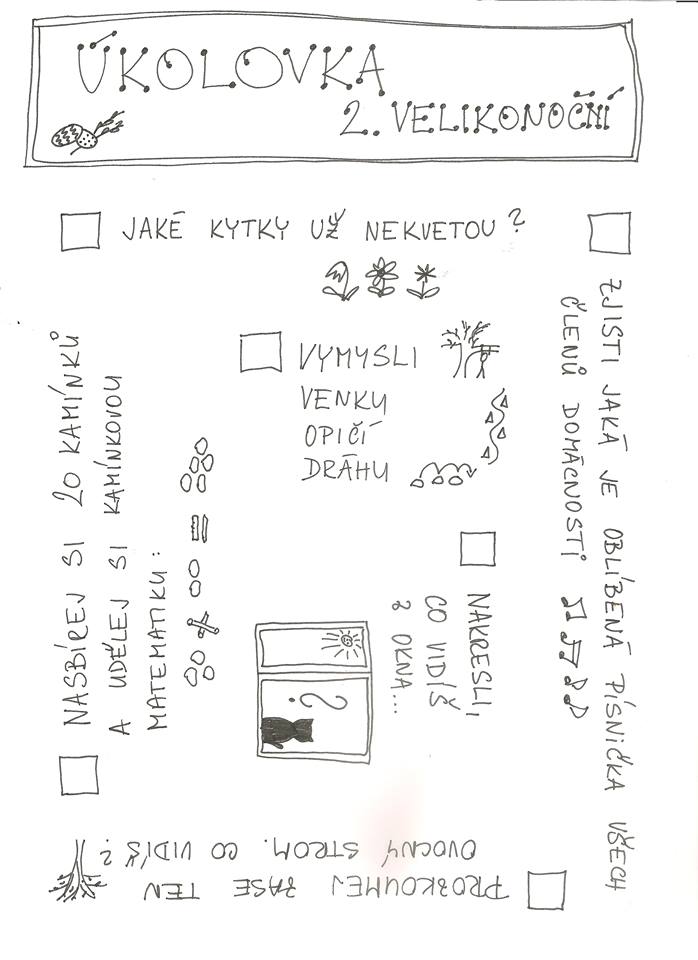 ÚKOLOVKA
2. VELIKONOČNÍ
JAKÉ KYTKY UŽ NEKVETOU?
ZJISTI JAKÁ JE OBLÍBENÁ PÍSNIČKA VŠECH
ČLENŮ DOMÁCNOSTI
VYMYSLI
VENKU
OPIČÍ
DRÁHU
NAKRESLI,
CO VIDÍŠ
Z OKNA...
?
NASBÍREJ SI 20 KAMÍNKŮ
A UDĚLEJ SI KAMÍNKOVOU
MATEMATIKU:
PROZKOUMEJ ZASE TEN
OVOCNÝ STROM. CO VIDÍŠ?